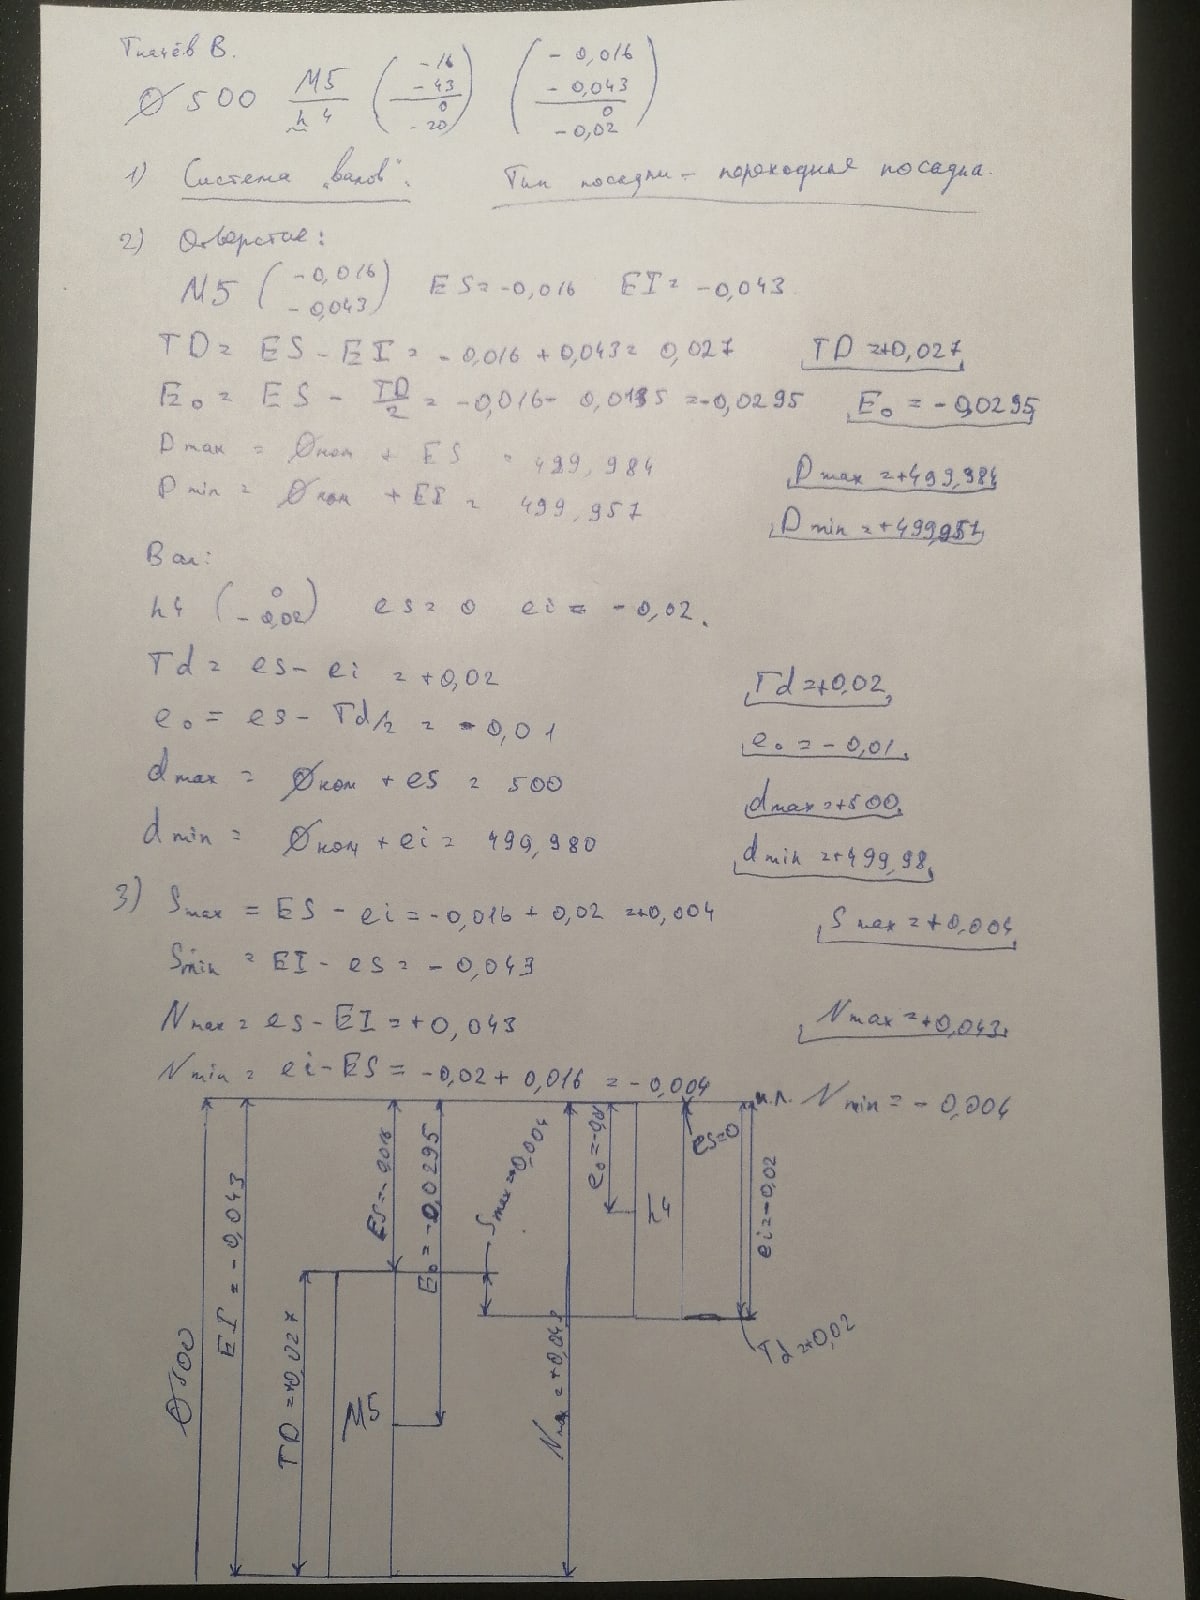 Ткачёв В.
Ø 500 M5/h4 (-16 -43 / 0 -20) (-0,016 -0,043 / 0 -0,02)
1) Система „валов“. Тип посадки - переходная посадка.
2) Отверстие:
M5 (-0,016 -0,043) ES = -0,016 EI = -0,043
TD = ES - EI = -0,016 + 0,043 = 0,027 TD = +0,027
E₀ = ES - TD/2 = -0,016 - 0,0135 = -0,0295 E₀ = -0,0295
D max = Øном + ES = 499,984 D max = +499,984
D min = Øном + EI = 499,957 D min = +499,957
Вал:
h4 (0 -0,02) es = 0 ei = -0,02.
Td = es - ei = +0,02 Td = +0,02
e₀ = es - Td/2 = -0,01 e₀ = -0,01
d max = Øном + es = 500 d max = +500
d min = Øном + ei = 499,980 d min = +499,98
3) S max = ES - ei = -0,016 + 0,02 = +0,004 S max = +0,004
S min = EI - es = -0,043
N max = es - EI = +0,043 N max = +0,043
N min = ei - ES = -0,02 + 0,016 = -0,004
н.л. N min = -0,004
Ø500
EI = -0,043
TD = +0,027
M5
ES = -0,016
E₀ = -0,0295
S max = +0,004
N max = +0,043
e₀ = -0,01
h4
es = 0
ei = -0,02
Td = +0,02